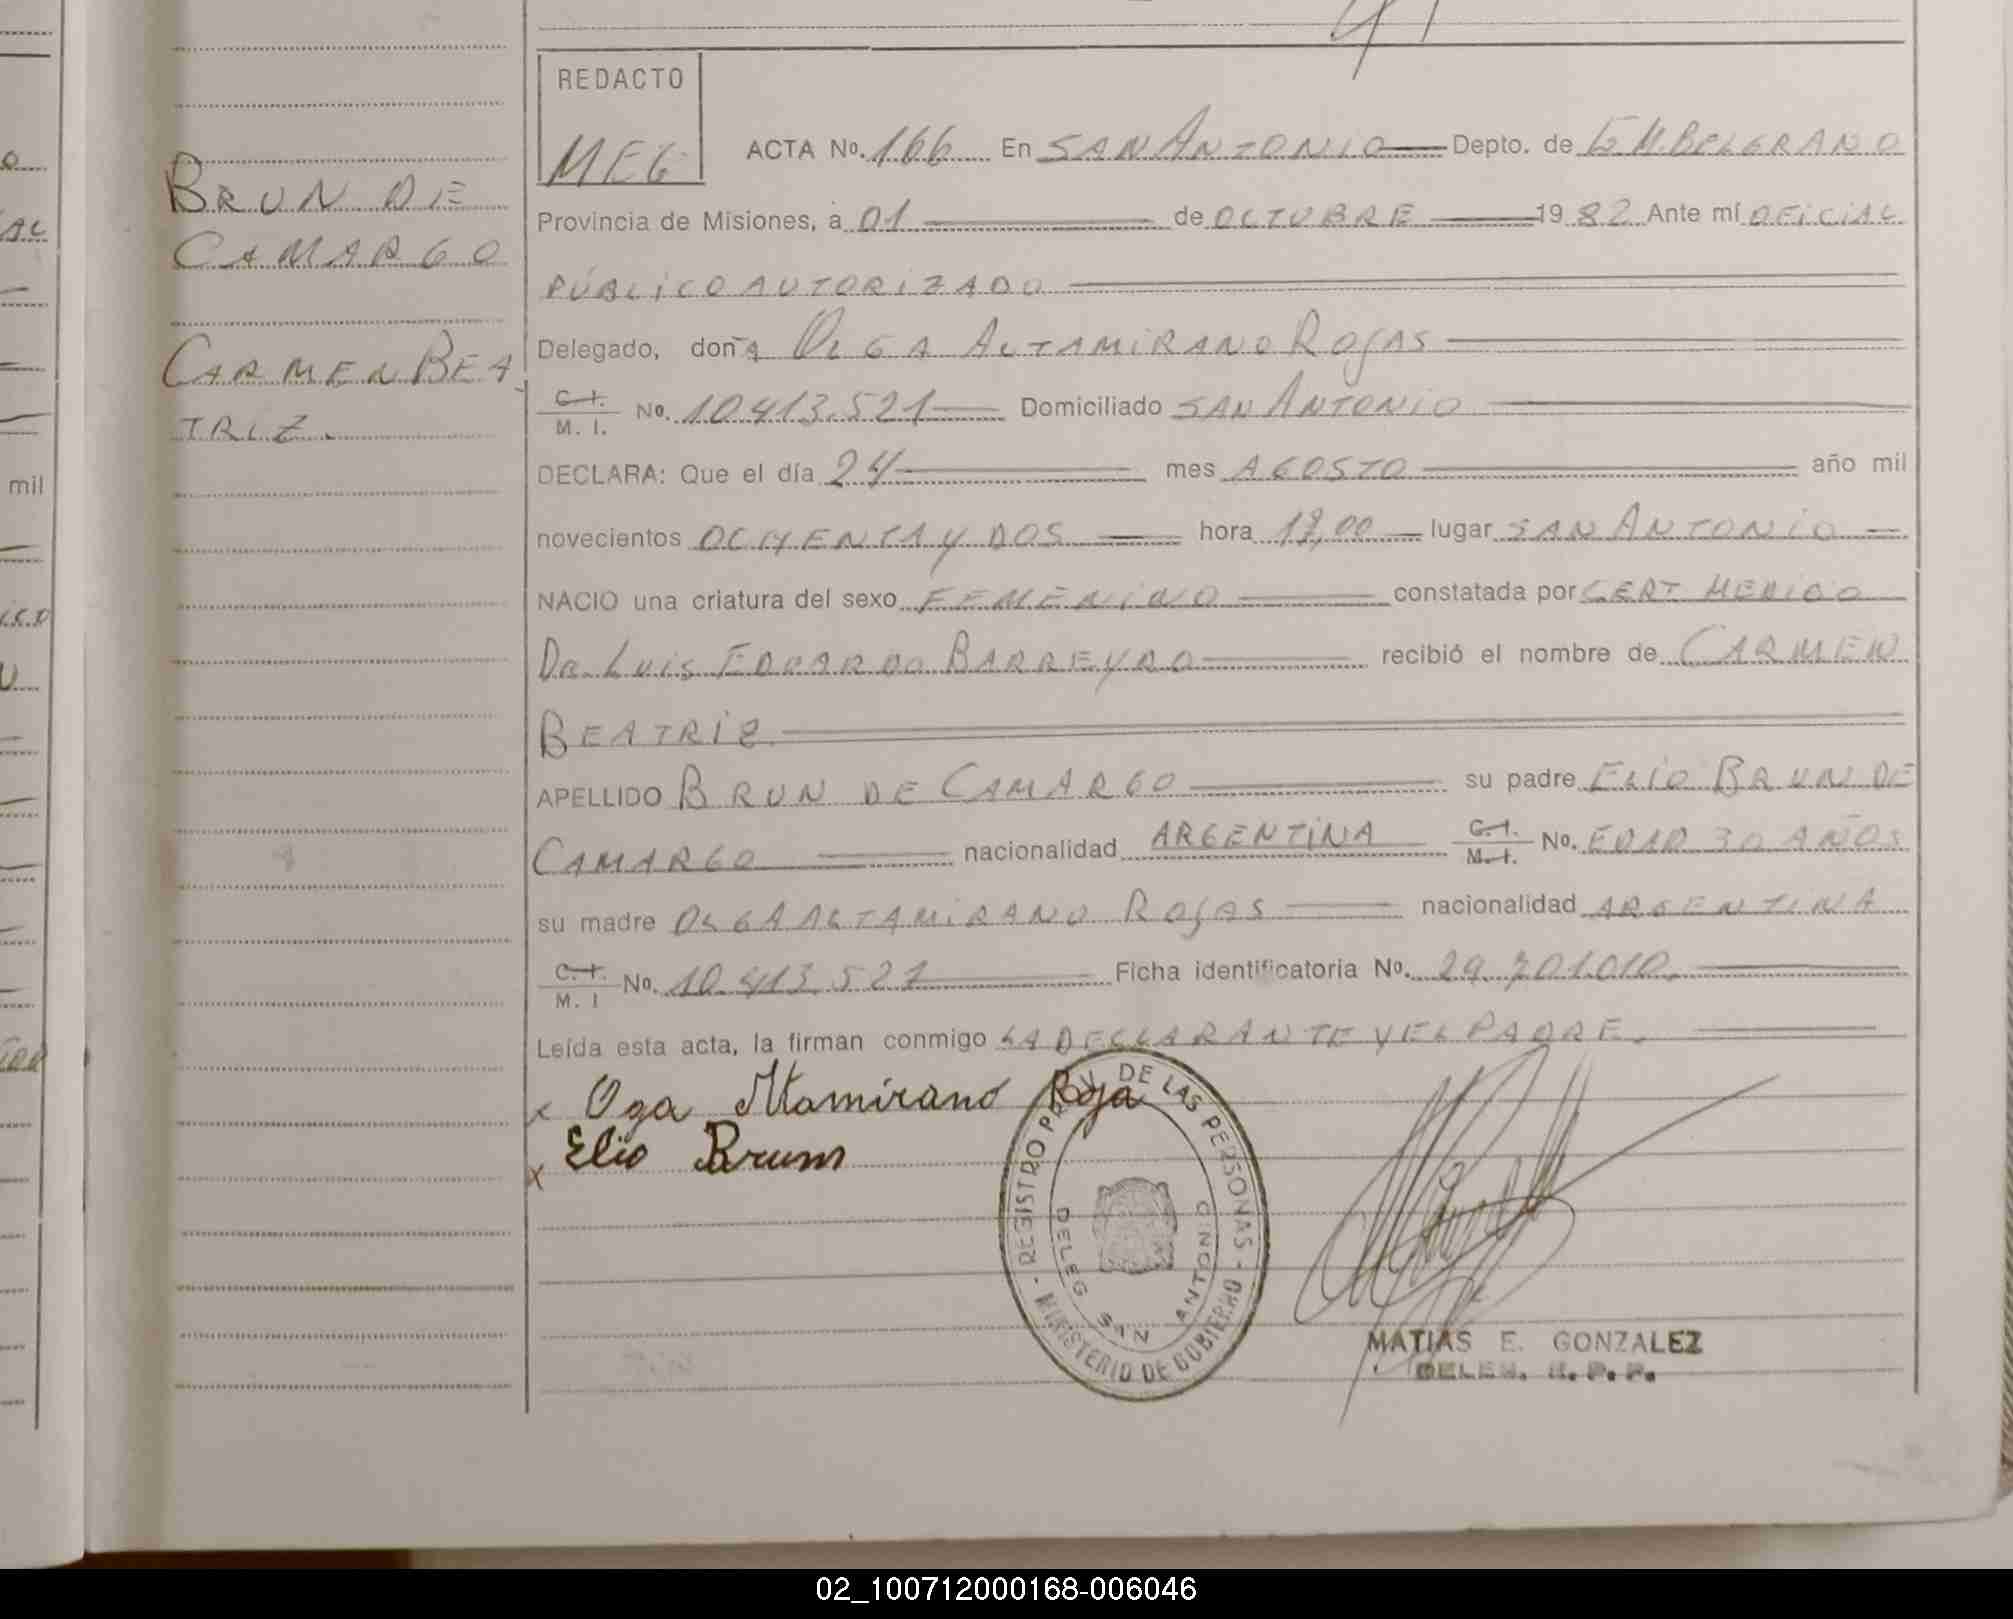 BRUN DE
CAMARGO
CARMEN BEA
TRIZ.
mil
REDACTO
MEG
ACTA No. 166 En SAN ANTONIO Depto. de G M. BELGRANO
Provincia de Misiones, a 01 de OCTUBRE 1982 Ante mí OFICIAL
PÚBLICO AUTORIZADO
Delegado, doña OLGA ALTAMIRANO ROJAS
C. I.
M. I. No. 10.413.521 Domiciliado SAN ANTONIO
DECLARA: Que el día 24 mes AGOSTO año mil
novecientos OCHENTA Y DOS hora lugar SAN ANTONIO
NACIO una criatura del sexo FEMENINO constatada por CERT MEDICO
DR. LUIS EDUARDO BARREYRO recibió el nombre de CARMEN
BEATRIZ
APELLIDO BRUN DE CAMARGO su padre ELIO BRUN DE
CAMARGO nacionalidad ARGENTINA C. I. M. I. No. EDAD 30 AÑOS
su madre OLGA ALTAMIRANO ROJAS nacionalidad ARGENTINA
C. I.
M. I No. 10.413.521 Ficha identificatoria No. 29.701.010.
Leída esta acta, la firman conmigo LA DECLARANTE Y EL PADRE.
x Oga Altamirano Roja
x Elio Brum
REGISTRO PROV. DE LAS PERSONAS - MINISTERIO DE GOBIERNO -
DELEG SAN ANTONIO
MATIAS E. GONZALEZ
DELEG. R. P. P.
02_100712000168-006046